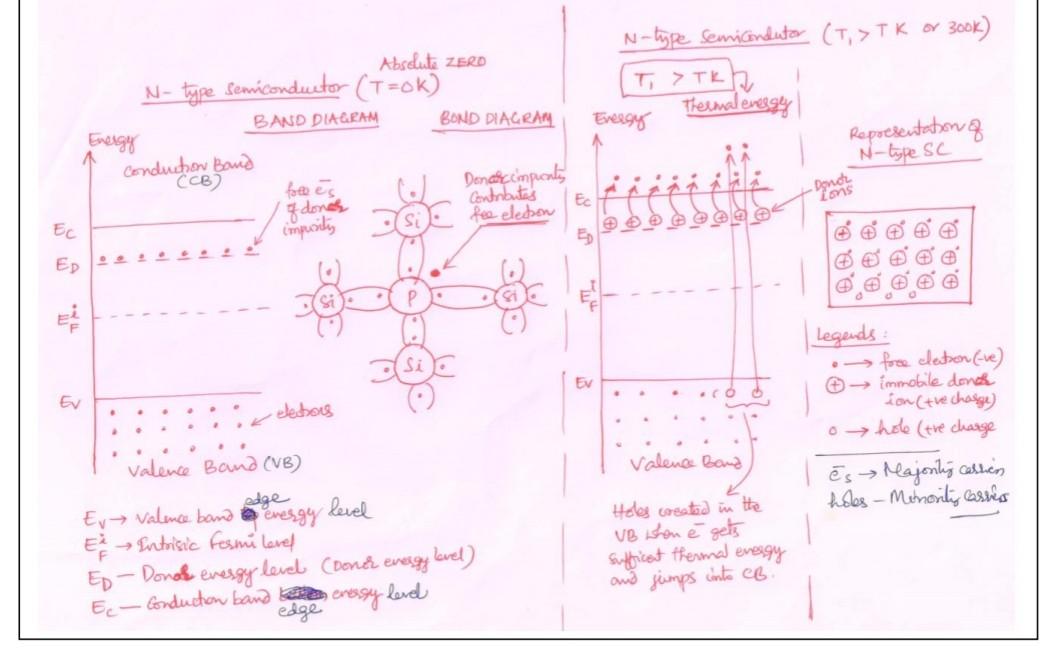 N-type Semiconductor (T=0K)
Absolute ZERO
BAND DIAGRAM
BOND DIAGRAM
Energy
Conduction Band
(CB)
free e̅s
of donor
impurity
Donor impurity
contributes
free electron
EC
ED
E^i_F
EV
Si
Si
P
Si
Si
electrons
Valence Band (VB)
EV → Valence band edge energy level
E^i_F → Intrisic Fermi level
ED — Donor energy level (Donor energy level)
EC — Conduction band edge energy level
N-type Semiconductor (T1 > TK or 300K)
T1 > TK
thermal energy
Energy
EC
ED
E^I_F
EV
Donor
ions
Valence Band
Holes created in the
VB when e̅ gets
sufficent thermal energy
and jumps into CB.
Representation of
N-type SC
Legends :
• → free electron (-ve)
⊕ → immobile donor
ion (+ve charge)
o → hole (+ve charge
e̅s → Majority carriers
holes - Minority carriers